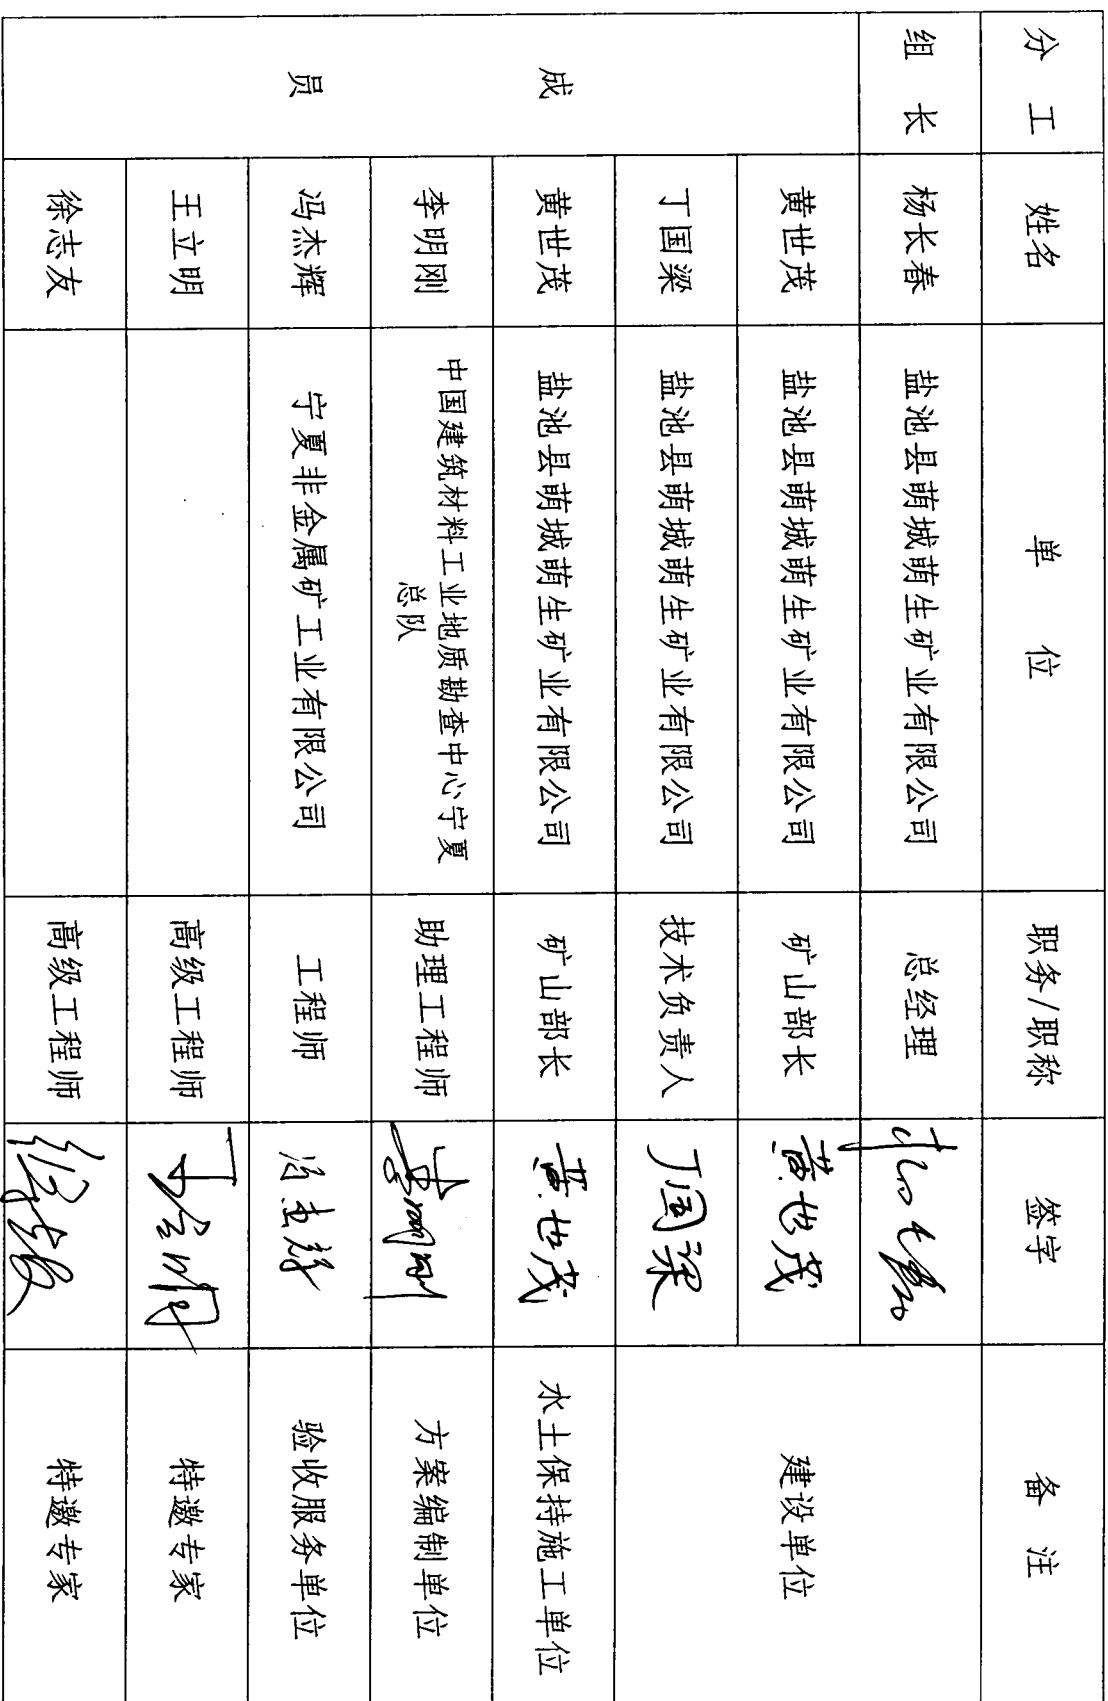 分 工 姓名 单 位 职务/职称 签字 备 注
组 长 杨长春 盐池县萌城萌生矿业有限公司 总经理 建设单位
成 员
黄世茂 盐池县萌城萌生矿业有限公司 矿山部长 黄世茂
丁国梁 盐池县萌城萌生矿业有限公司 技术负责人 丁国梁
黄世茂 盐池县萌城萌生矿业有限公司 矿山部长 黄世茂 水土保持施工单位
李明刚 中国建筑材料工业地质勘查中心宁夏
总队 助理工程师 李明刚 方案编制单位
冯杰辉 宁夏非金属矿工业有限公司 工程师 冯杰辉 验收服务单位
王立明 高级工程师 王立明 特邀专家
徐志友 高级工程师 特邀专家